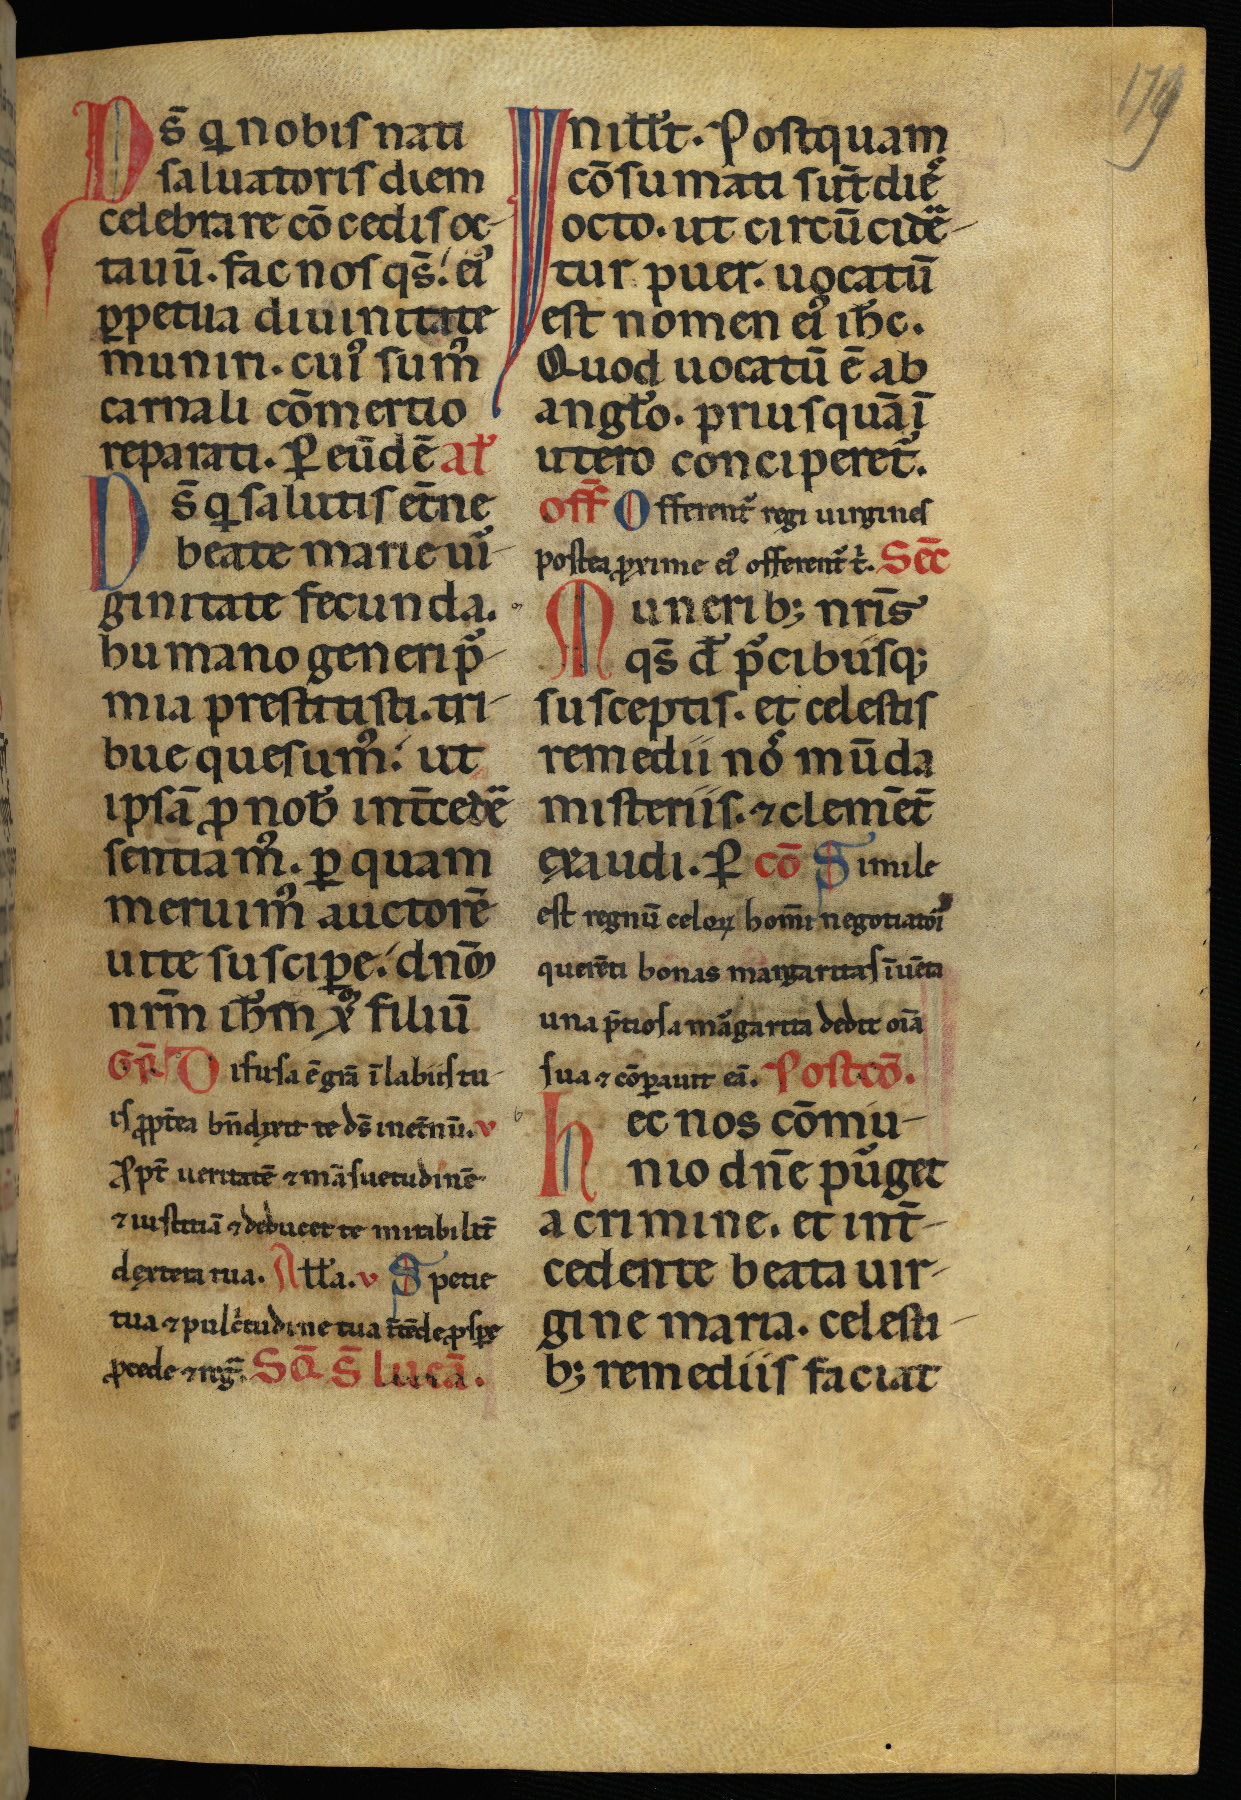 179
Ds̄ q nobis nati
saluatoris diem
celebrare cōcedis oc-
tauū. fac nos qs̄. ei᾿
ꝑpetua diuinitate
muniri. cui᾿ sum᾿
carnali cōmertio
reparati. P eūdē al᾿
Ds̄ q salutis et̄ne
beate marie ui-
ginitate fecunda.
humano generi p̄-
mia prestitisti. tri-
bue quesum᾿. ut
ipsā ꝓ nob̄ int̄cedē
sentiam᾿. ꝑ quam
meruim᾿ auctorē
uite suscipe. dnm̄
nrm̄ ih̄m xp̄ filiū
GR̄ Difusa ē grā ī labiis tu-
is ꝓpt̄ea bn̄dixit te ds̄ inet̄nū. v
Ꝓpt̄ ueritatē ⁊ māsuetudinē
⁊ iustitiā ⁊ deducet te mirabilit̄
dextera tua. Alł᾿a. v Spetie
tua ⁊ pulc᾿tudine tua īt̄ēde ꝓspe
ꝓcede ⁊ rḡ. SQ̄ S̄ lucā.
In illt̄. Postquam
cōsumati sūt dieˢ
octo. ut circūcidē-
tur puer. uocatū
est nomen ei᾿ ihc̄.
Quod uocatū ē ab
anglo. priusquā ī
utero conciperet᾿.
Off̄ Offerent᾿ regi uirgines
postea ꝓxime ei᾿ offerent᾿ t᾿. Sēc
Munerib; nrīs
qs̄ d̄ p̄cibusq;
susceptis. et celestis
remedii noˢ mūda
misteriis. ⁊ clemēt̄
exaudi. P cō Simile
est regnū celoꝝ homī negotiatoi᾿
querēti bonas margaritas īuēta
una p̄tiosa margarita dedit oīa
sua ⁊ cōꝑauit eā. Postcō.
Hec nos cōmu-
nio dn̄e purget
a crimine. et int̄-
cedente beata uir-
gine maria. celesti-
b; remediis faciat